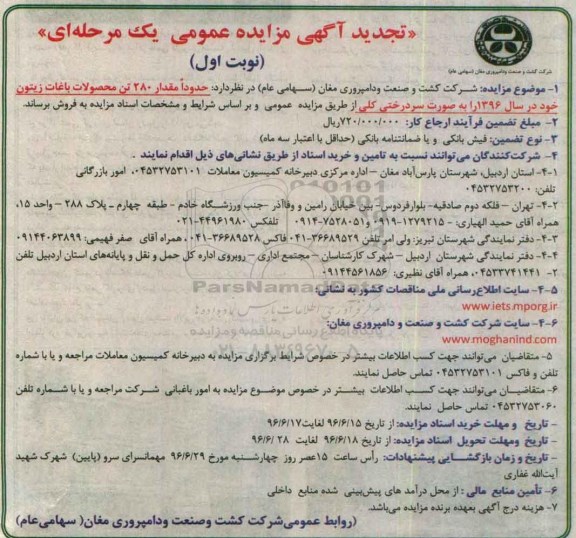 «تجدید آگهی مزایده عمومی یک مرحله‌ای»
(نوبت اول)
شرکت کشت و صنعت ودامپروری مغان (سهامی عام)
۱- موضوع مزایده: شرکت کشت و صنعت ودامپروری مغان (سهامی عام) در نظردارد: حدوداً مقدار ۲۸۰ تن محصولات باغات زیتون
خود در سال ۱۳۹۶را به صورت سردرختی کلی از طریق مزایده عمومی و بر اساس شرایط و مشخصات اسناد مزایده به فروش برساند.
۲- مبلغ تضمین فرآیند ارجاع کار: ۷۲۰/۰۰۰/۰۰۰ریال
۳- نوع تضمین: فیش بانکی و یا ضمانتنامه بانکی (حداقل با اعتبار سه ماه)
۴- شرکت‌کنندگان می‌توانند نسبت به تامین و خرید اسناد از طریق نشانی‌های ذیل اقدام نمایند.
۴-۱- استان اردبیل، شهرستان پارس‌آباد مغان – اداره مرکزی دبیرخانه کمیسیون معاملات ۰۴۵۳۲۷۵۳۱۰۱، امور بازرگانی
تلفن: ۰۴۵۳۲۷۵۳۲۰۰
۴-۲- تهران – فلکه دوم صادقیه- بلوارفردوس- بین خیابان رامین و وفاآذر -جنب ورزشگاه خادم – طبقه چهارم – پلاک ۲۸۸ – واحد ۱۵،
همراه آقای حمید الهیاری: ۱۲۷۹۲۱۵-۰۹۱۹ و۷۵۲۸۰۵۱-۰۹۱۴ تلفکس ۴۴۹۶۱۹۸۰-۰۲۱
۴-۳- دفتر نمایندگی شهرستان تبریز: ولی امر تلفن ۳۶۶۸۹۵۲۹-۰۴۱ فاکس ۳۶۶۸۹۵۲۸-۰۴۱، همراه آقای صفر فهیمی: ۰۹۱۴۴۰۶۳۸۹۹
۴-۴- دفتر نمایندگی شهرستان اردبیل – شهرک کارشناسان – مجتمع اداری – روبروی اداره کل حمل و نقل و پایانه‌های استان اردبیل تلفن
۲- ۰۴۵۳۳۷۴۱۴۴۱، همراه آقای نظیری: ۰۹۱۴۴۵۶۱۸۵۶
۴-۵- سایت اطلاع‌رسانی ملی مناقصات کشور به نشانی:
www.iets.mporg.ir
۴-۶- سایت شرکت کشت و صنعت و دامپروری مغان:
www.moghanind.com
۵- متقاضیان می‌توانند جهت کسب اطلاعات بیشتر در خصوص شرایط برگزاری مزایده به دبیرخانه کمیسیون معاملات مراجعه و یا با شماره
تلفن و فاکس ۰۴۵۳۲۷۵۳۱۰۱ تماس حاصل نمایند.
۶- متقاضیان می‌توانند جهت کسب اطلاعات بیشتر در خصوص موضوع مزایده به امور باغبانی شرکت مراجعه و یا با شماره تلفن
۰۴۵۳۲۷۵۳۰۶۰ تماس حاصل نمایند.
– تاریخ و مهلت خرید اسناد مزایده: از تاریخ ۹۶/۶/۱۵ لغایت۹۶/۶/۱۷
– تاریخ ومهلت تحویل اسناد مزایده: از تاریخ ۹۶/۶/۱۸ لغایت ۲۸ /۹۶/۶
– تاریخ و زمان بازگشایی پیشنهادات: رأس ساعت ۱۵عصر روز چهارشنبه مورخ ۹۶/۶/۲۹ مهمانسرای سرو (پایین) شهرک شهید
آیت‌الله غفاری
۶- تأمین منابع مالی : از محل درآمد های پیش‌بینی شده منابع داخلی
۷- هزینه درج آگهی بعهده برنده مزایده می‌باشد.
(روابط عمومی‌شرکت کشت وصنعت ودامپروری مغان( سهامی‌عام)